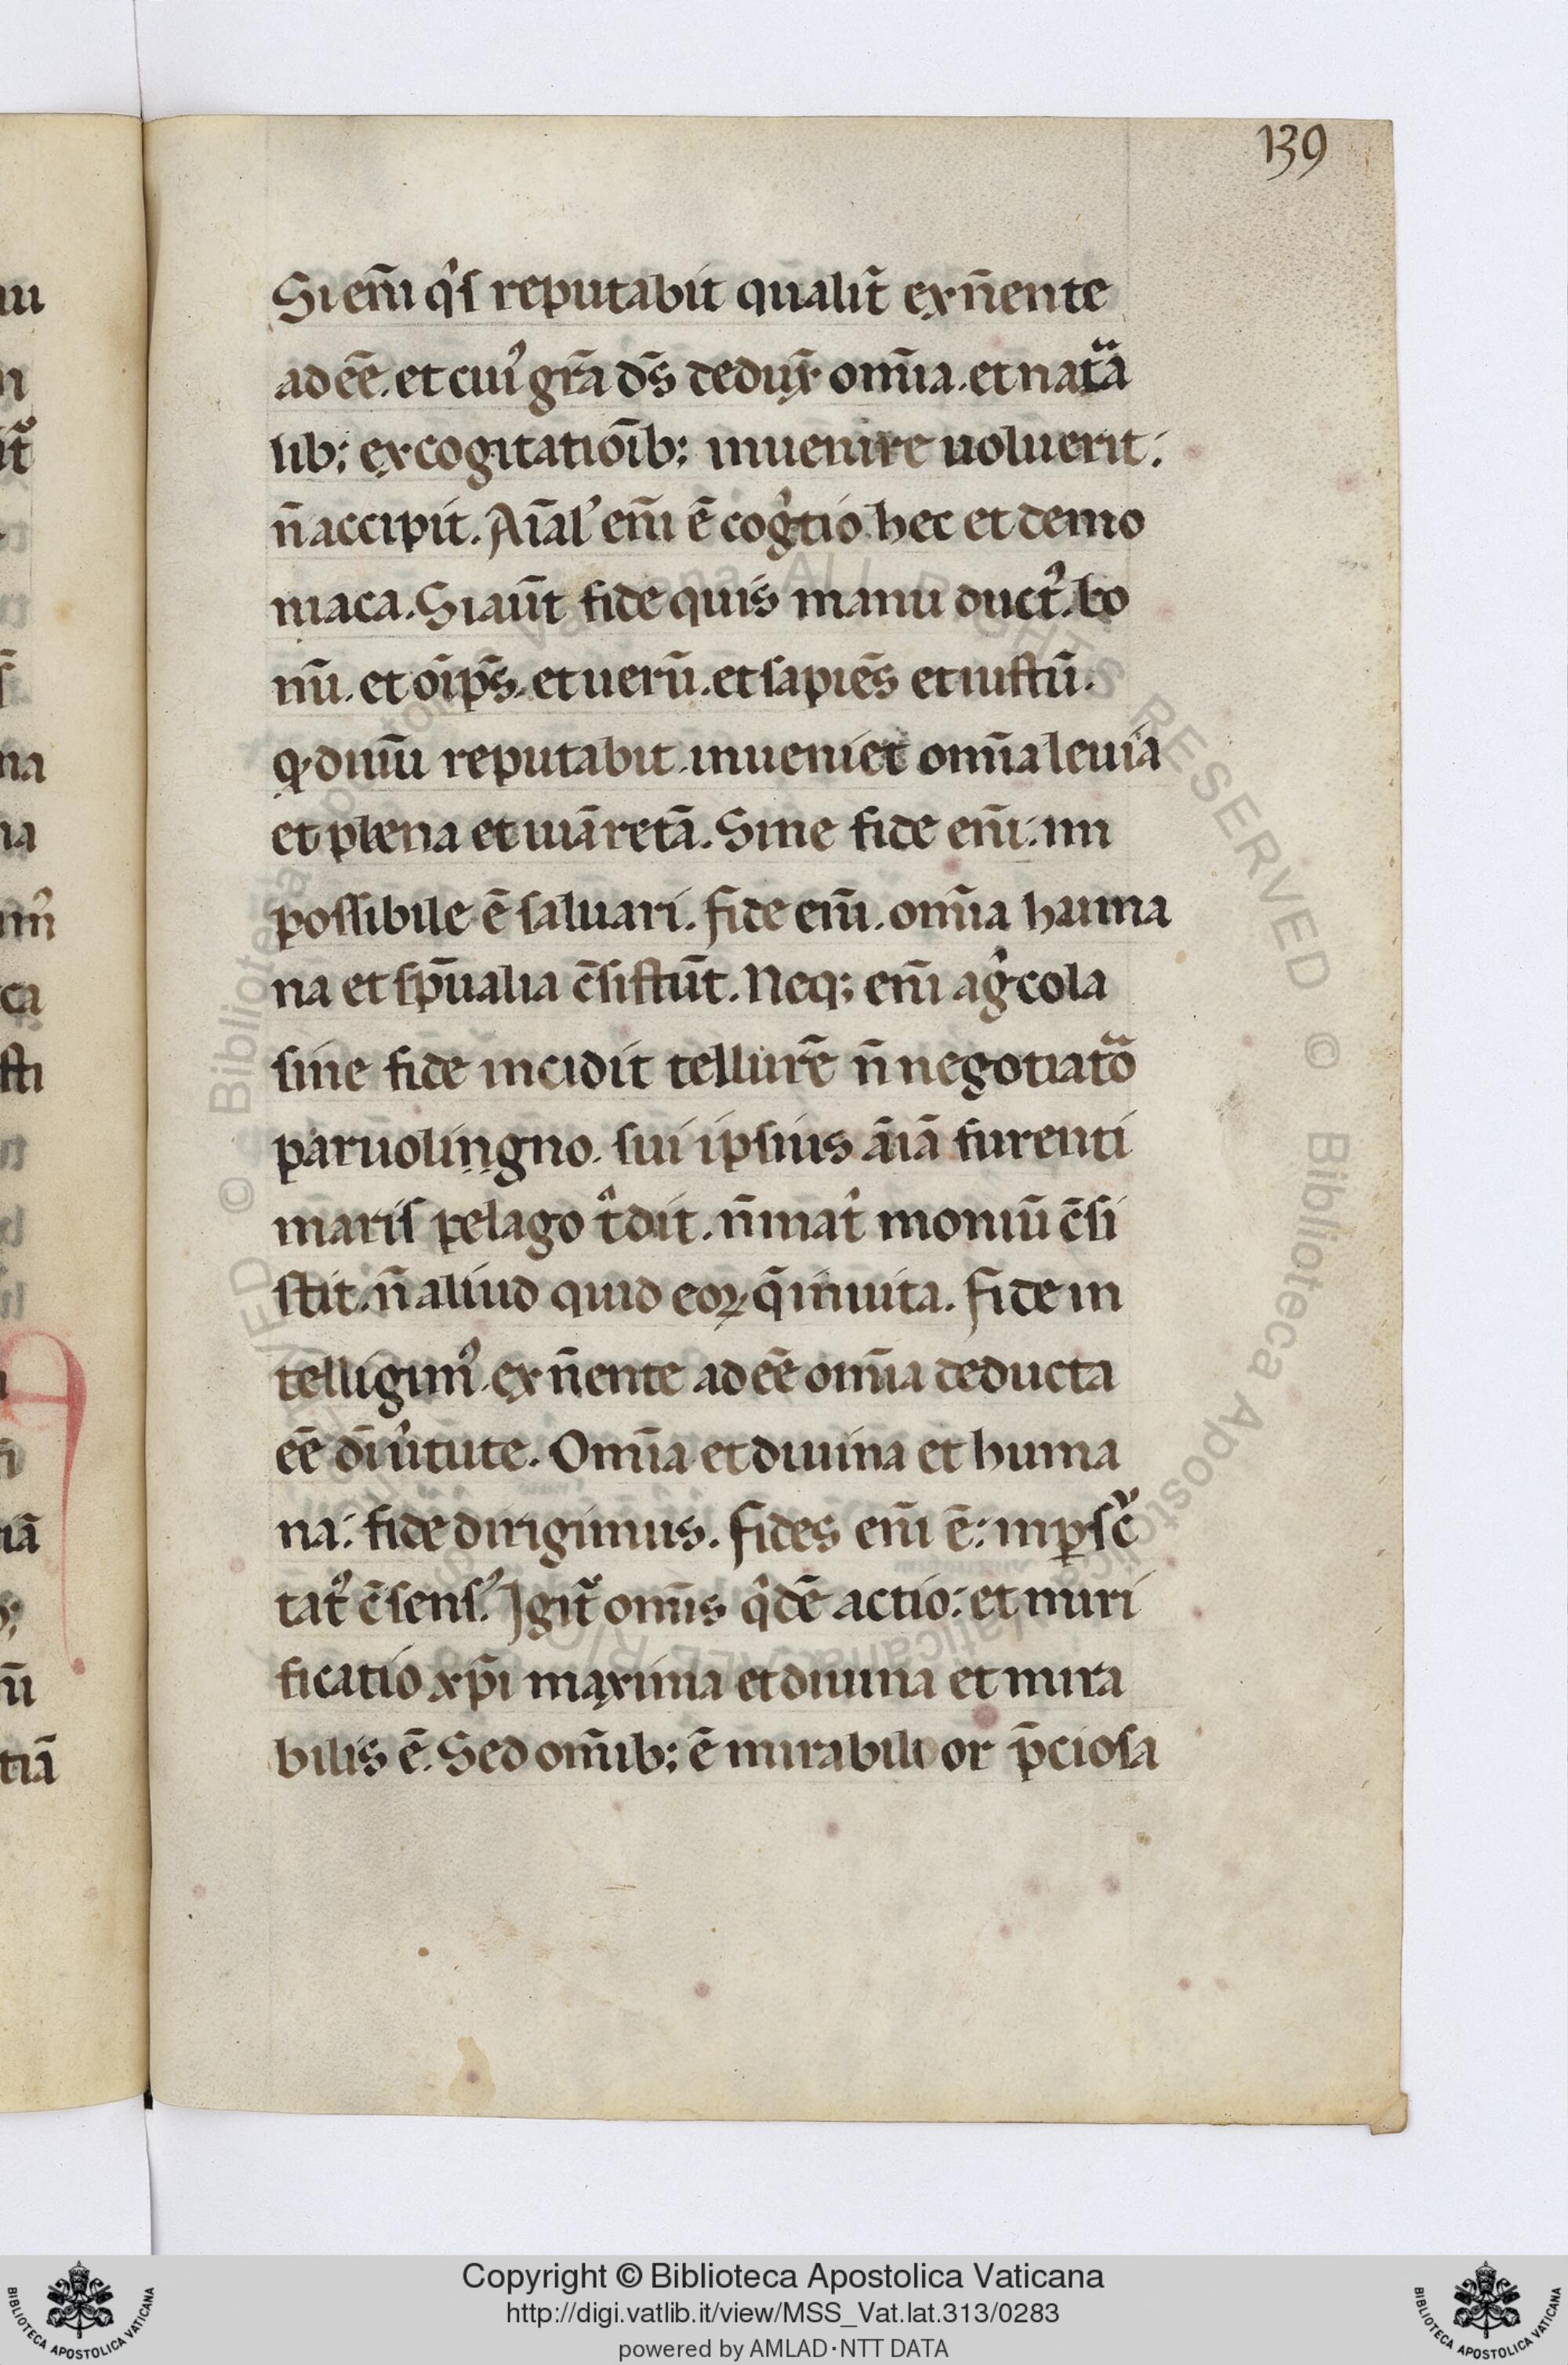 139
Si eni̅ qͥs reputabit qualit̅ ex n̅ente
ad ee̅. et cuiꝰ gra̅ ds̅ dedux̅ omi̅a. et natᷓa
lib; excogitatio̅ib; inuenire uoluerit.
n̅ accipit. Ai̅alꝰ eni̅ e̅ cogͥtio hec et demo
niaca. Si aut̅ fide quis manu ductꝰ. bo
nu̅. et oi̅ps̅. et ueru̅. et sapie̅s et iustu̅.
q. diuiu̅ reputabit. inueniet omi̅a leuia
et plena et uia̅ reta̅. Sine fide eni̅. im
possibile e̅ saluari. fide eni̅. omi̅a huma
na et spu̅alia c̅sistu̅t. Neq; eni̅ agͥcola
sine fide incidit tellure̅ n̅ negotiatᷓo
paruo lingno. sui ipsius ai̅a̅ furenti
maris pelago tᷓdit. n̅ matͥ moniu̅ c̅si
stit. n̅ aliud quid eoꝝ q̅ in uita. fide in
telligimꝰ. ex n̅ente ad ee̅ omi̅a deducta
ee̅ di̅ uͥtute. Omi̅a et diuina et huma
na. fide dirigimus. fides eni̅ e̅. inꝑscͮ
tatꝰ c̅sensꝰ. Igitᷓ omi̅s qͥde̅ actio. et miri
ficatio xpi̅ maxima et diuina et mira
bilis e̅. Sed omi̅b; e̅ mirabilior p̅ciosa
Copyright © Biblioteca Apostolica Vaticana
http://digi.vatlib.it/view/MSS_Vat.lat.313/0283
powered by AMLAD·NTT DATA